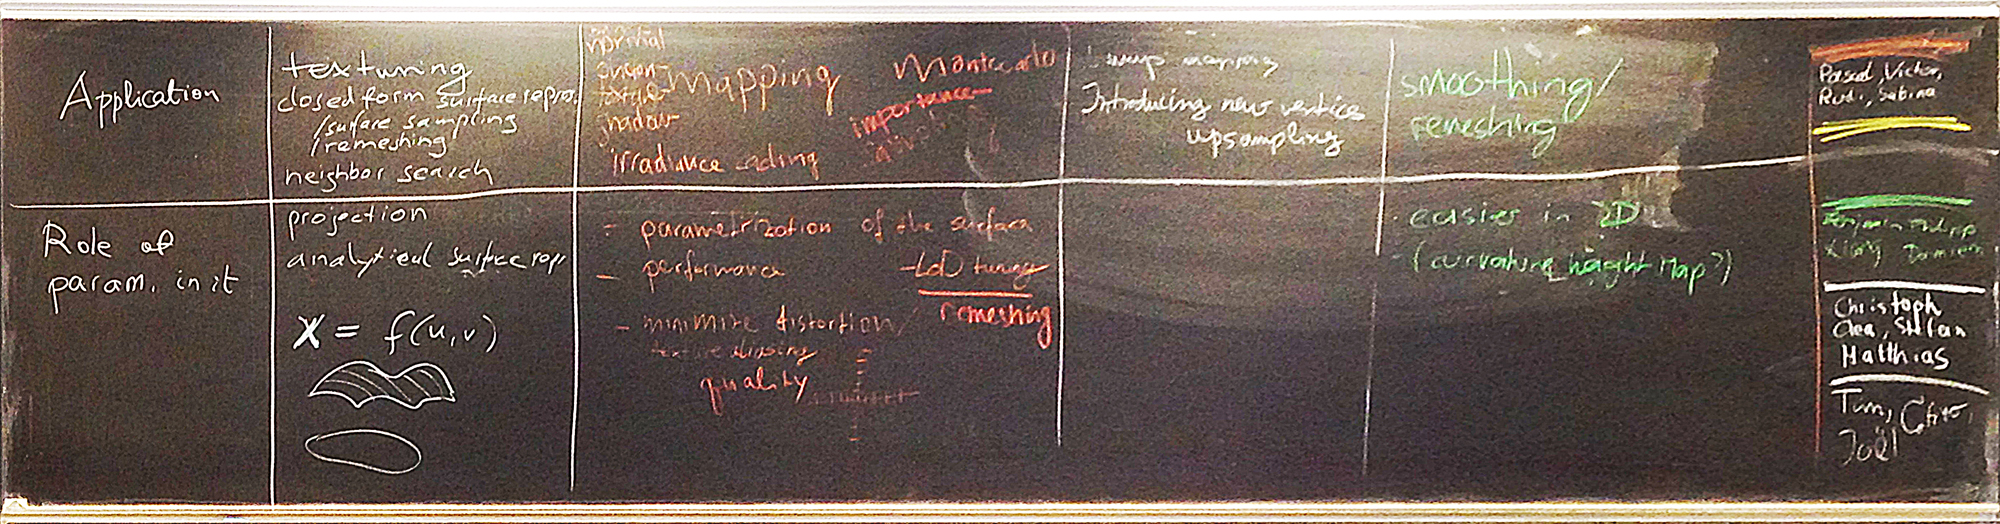 Application
texturing
closed form surface repr.
/surface sampling
/remeshing
neighbor search
normal
mapping
shadow
irradiance caching
Montecarlo
importance
mapping
Introducing new vertice
upsampling
smoothing/
remeshing
Pascal, Victor,
Rudi, Sabina
Role of
param. in it
projection
analytical surface repr
X = f(u,v)
- parametrization of the surface
- performance
- LoD tuning
remeshing
- minimize distortion/
quality
- easier in 2D
- (curvature height Map?)
Christoph
Stefan
Matthias
Tim,
Joël